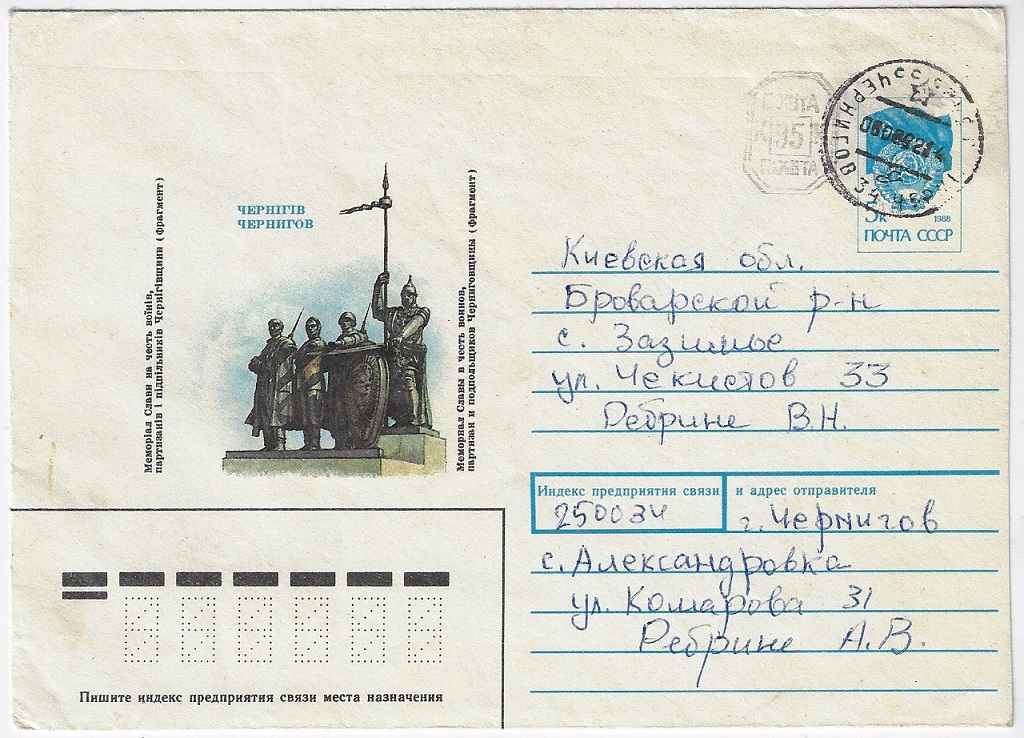 ЧЕРНІГІВ
ЧЕРНИГОВ
Меморіал Слави на честь воїнів,
партизанів і підпільників Чернігівщини (Фрагмент)
Мемориал Славы в честь воинов,
партизан и подпольщиков Черниговщины (Фрагмент)
95
ЧЕРНИГОВ 34
5к 1988
ПОЧТА СССР
Киевская обл.
Броварской р-н
с. Зазимье
ул. Чекистов 33
Ребрине В.Н.
Индекс предприятия связи
250034
и адрес отправителя
г. Чернигов
с. Александровка
ул. Комарова 31
Ребрине А.В.
Пишите индекс предприятия связи места назначения